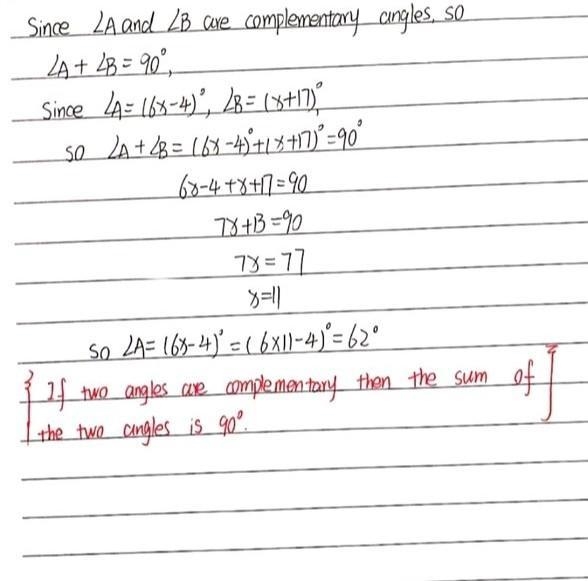 Since ∠A and ∠B are complementary angles, so
∠A + ∠B = 90°,
Since ∠A = (6x-4)°, ∠B = (x+17)°
so ∠A + ∠B = (6x-4)° + (x+17)° = 90°
6x-4+x+17=90
7x+13=90
7x=77
x=11
so ∠A = (6x-4)° = (6×11-4)° = 62°
{ If two angles are complementary then the sum of
the two angles is 90°. }